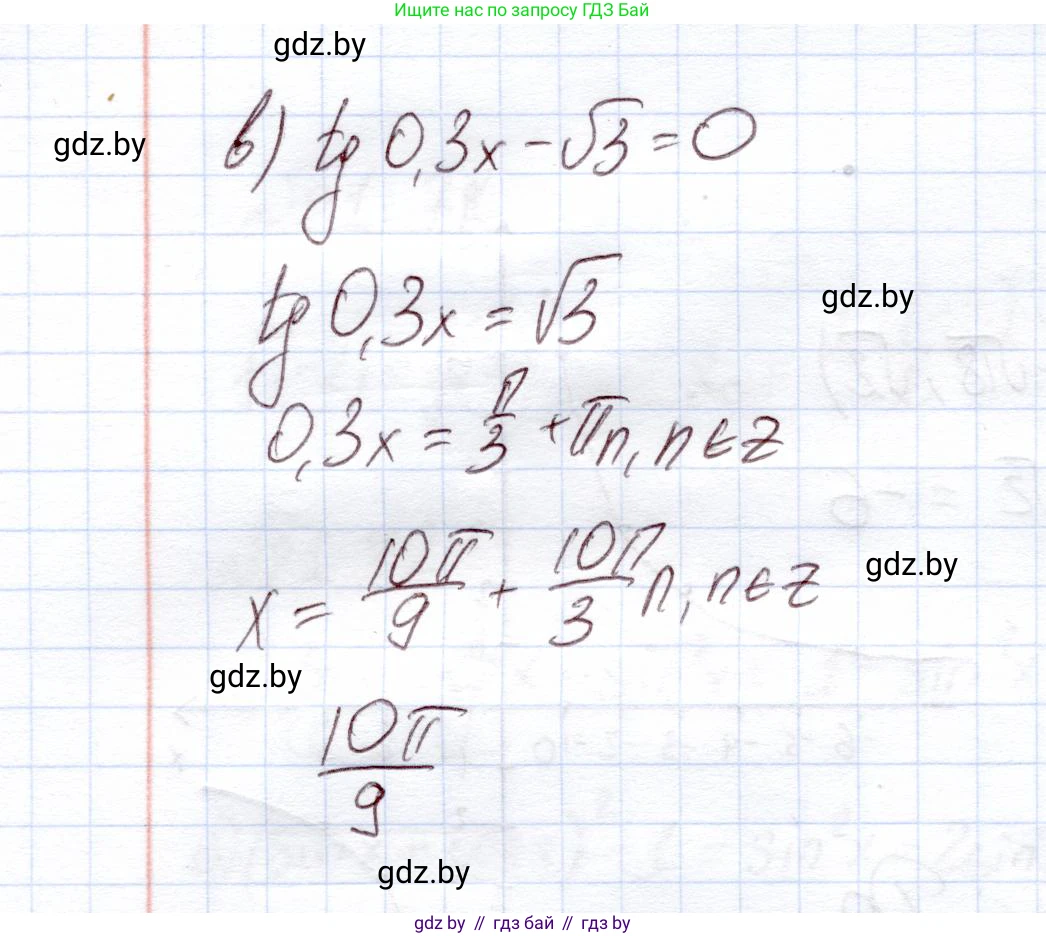 Ищите нас по запросу ГДЗ Бай
gdz.by
gdz.by
в) tg 0,3x - √3 = 0
tg 0,3x = √3
gdz.by
0,3x = π/3 + πn, n ∈ z
x = 10π/9 + 10π/3 n, n ∈ z
gdz.by
gdz.by
10π/9
gdz.by
gdz by // гдз бай // гдз by